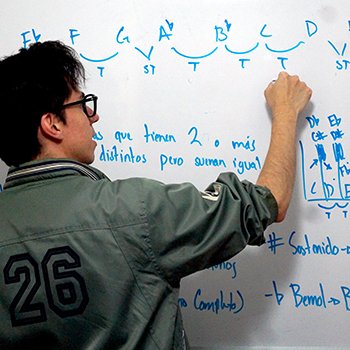 E♭ F G A♭ B♭ C D
T ST T T T
que tienen 2 o más
distintos pero suenan igual
D♭ E♭
C# D#
C D E
T T
# Sostenido
Completo)
♭ Bemol
26